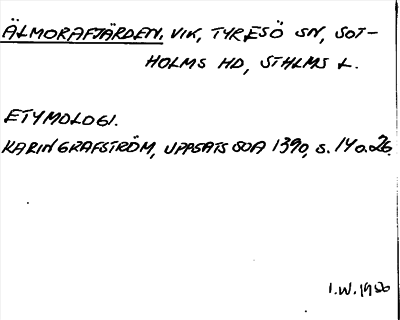 ÄLMORAFJÄRDEN. VIK, TYRESÖ SN, SOT-
HOLMS HD, STHLMS L.
ETYMOLOGI.
KARIN GRAFSTRÖM, UPPSATS SOA 1390, s. 14 o. 26.
I.W. 1980